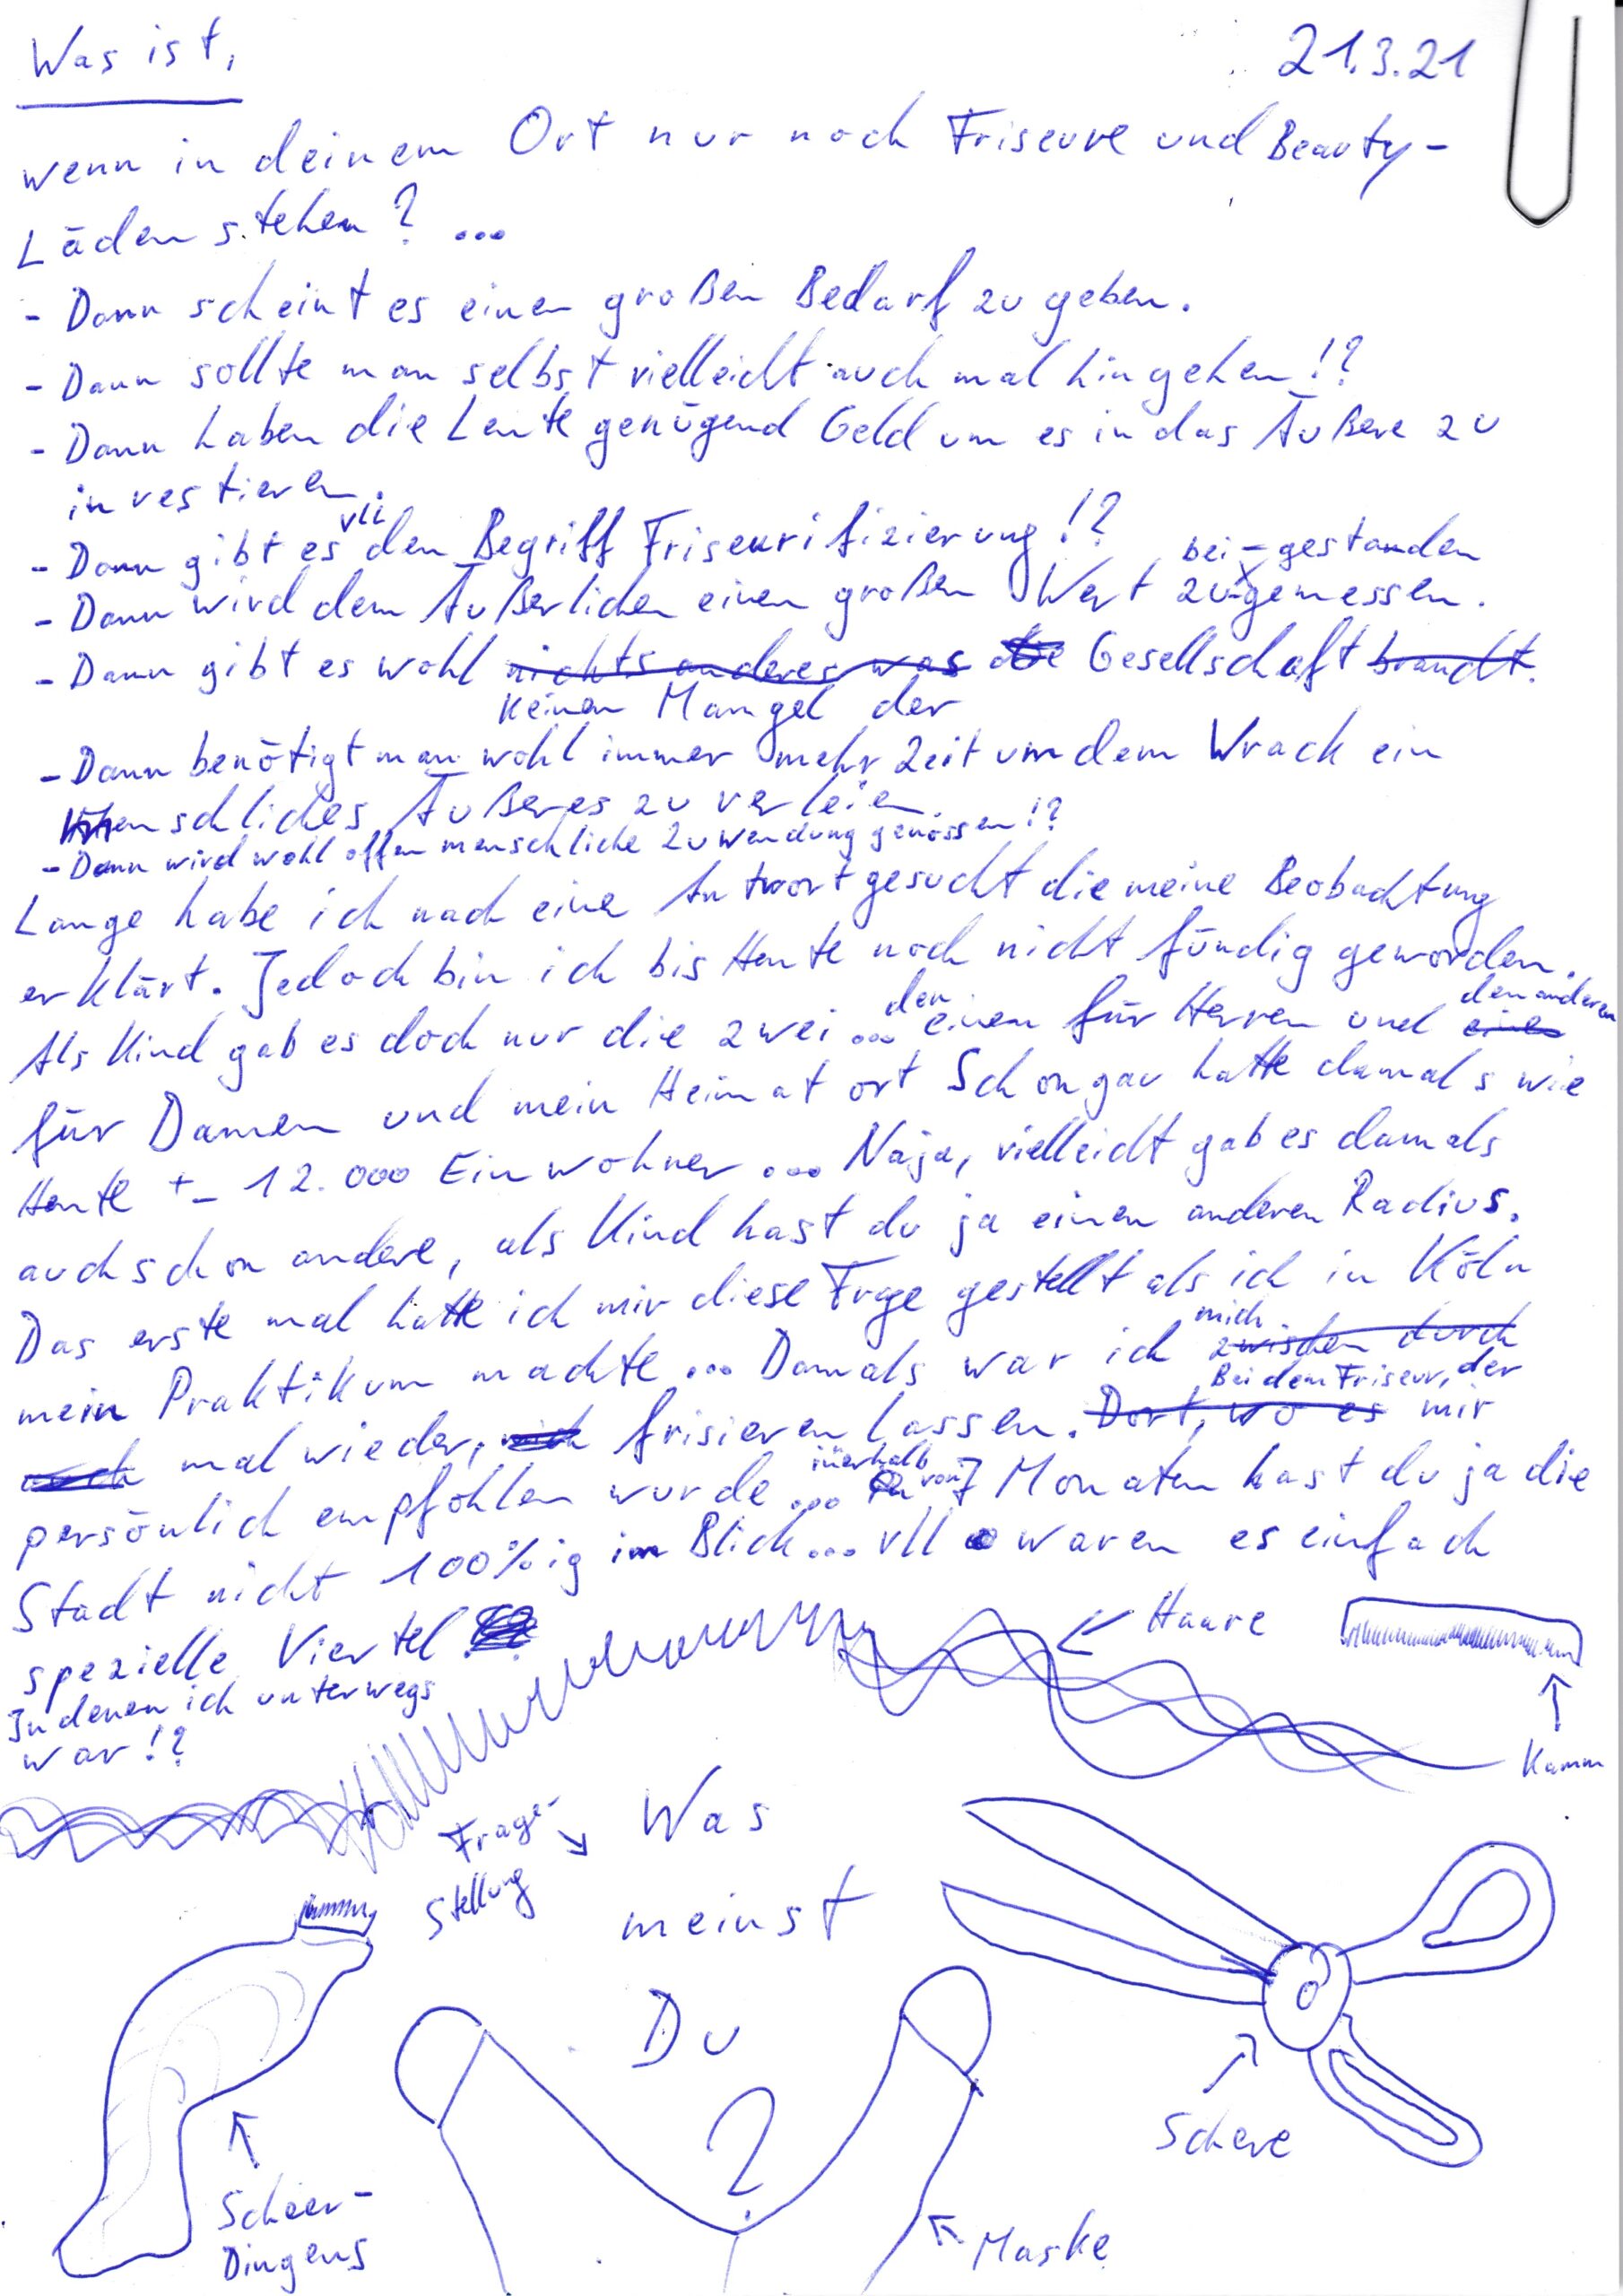 Was ist,
21.3.21
wenn in deinem Ort nur noch Friseure und Beauty-
Läden stehen? ...
- Dann scheint es einen großen Bedarf zu geben.
- Dann sollte man selbst vielleicht auch mal hingehen!?
- Dann haben die Leute genügend Geld um es in das Äußere zu
investieren.
vll
- Dann gibt es den Begriff Friseurifizierung!?
bei-gestanden
- Dann wird dem Äußerlichen einen großen Wert zu-gemessen.
- Dann gibt es wohl nichts anderes was die Gesellschaft braucht.
keinen Mangel der
- Dann benötigt man wohl immer mehr Zeit um dem Wrack ein
menschliches Äußeres zu verleien
- Dann wird wohl offen menschliche Zuwendung genossen!?
Lange habe ich nach einer Antwort gesucht die meine Beobachtung
erklärt. Jedoch bin ich bis Heute noch nicht fündig geworden.
den
den anderen
Als Kind gab es doch nur die zwei ... einen für Herren und einen
für Damen und mein Heimatort Schongau hatte damals wie
Heute +- 12.000 Einwohner ... Naja, vielleicht gab es damals
auch schon andere, als Kind hast du ja einen anderen Radius.
Das erste mal hatte ich mir diese Frage gestellt als ich in Köln
mich
mein Praktikum machte ... Damals war ich zwischen durch
Bei dem Friseur, der
auch mal wieder, mich frisieren lassen. Dort, wo es mir
innerhalb von
persönlich empfohlen wurde ... In 7 Monaten hast du ja die
Stadt nicht 100%ig im Blick... vll waren es einfach
spezielle Viertel
In denen ich unterwegs
war!?
Haare
Kamm
Frage-
Stellung
Was
meinst
Du
?
Schere
Scheer-
Dingens
Maske